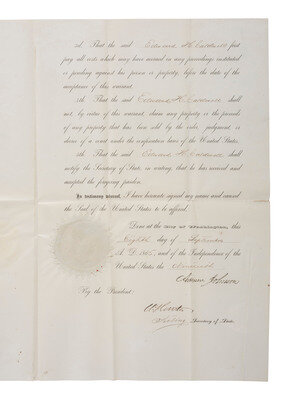 3d. That the said Edward H. Caldwell first
pay all costs which may have accrued in any proceedings instituted
or pending against his person or property, before the date of the
acceptance of this warrant.
4th. That the said Edward H. Caldwell shall
not, by virtue of this warrant, claim any property or the proceeds
of any property that has been sold by the order, judgment, or
decree of a court under the confiscation laws of the United States.
5th. That the said Edward H. Caldwell shall
notify the Secretary of State, in writing, that he has received and
accepted the foregoing pardon.
In testimony whereof, I have hereunto signed my name and caused
the Seal of the United States to be affixed.
Done at the CITY OF WASHINGTON, this
Eighth day of September
A. D. 1865, and of the Independence of the
United States the Ninetieth
Andrew Johnson
By the President:
Acting Secretary of State.